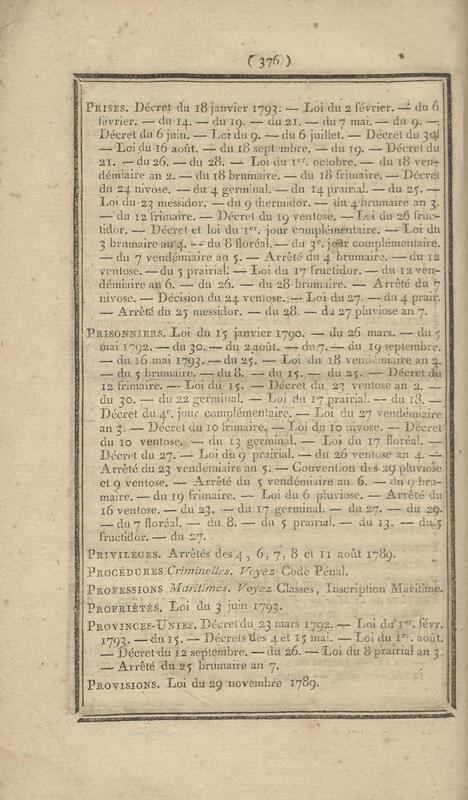 ( 376 )
PRISES. Décret du 18 janvier 1793. — Loi du 2 février. — du 6
février. — du 14. — du 19. — du 21. — du 7 mai. — du 9. —
Décret du 6 juin. — Loi du 9. — du 6 juillet. — Décret du
— Loi du 16 août. — du 18 septembre. — du 19. — Décret du
21. — du 26. — du 28. — Loi du 1er. octobre. — du 18 ven-
démiaire an 2. — du 18 brumaire. — du 18 frimaire. — Décret
du 24 nivose. — du 4 germinal. — du 14 prairial. — du 25. —
Loi du 23 messidor. — du 9 thermidor. — du 4 brumaire an 3.
— du 12 frimaire. — Décret du 19 ventose. — Loi du 26 fruc-
tidor. — Décret et loi du 1er. jour complémentaire. — Loi du
3 brumaire an 4. — du 8 floréal. — du 3e. jour complémentaire.
— du 7 vendémiaire an 5. — Arrêté du 4 brumaire. — du 12
ventose. — du 5 prairial. — Loi du 17 fructidor. — du 12 ven-
démiaire an 6. — du 26. — du 28 brumaire. — Arrêté du 7
nivose. — Décision du 24 ventose. — Loi du 27. — du 4 prair.
— Arrêté du 25 messidor. — du 28. — du 27 pluviose an 7.
PRISONNIERS. Loi du 15 janvier 1790. — du 26 mars. — du 5
mai 1792. — du 30. — du 2 août. — du 7. — du 19 septembre.
— du 16 mai 1793. — du 25. — Loi du 18 vendémiaire an 2.
— du 5 brumaire. — du 8. — du 15. — du 25. — Décret du
12 frimaire. — Loi du 15. — Décret du 23 ventose an 2. —
du 30. — du 22 germinal. — Loi du 17 prairial. — du 18. —
Décret du 4e. jour complémentaire. — Loi du 27 vendémiaire
an 3. — Décret du 10 frimaire. — Loi du 10 nivose. — Décret
du 10 ventose. — du 13 germinal. — Loi du 17 floréal. —
Décret du 27. — Loi du 9 prairial. — du 26 ventose an 4. —
Arrêté du 23 vendémiaire an 5. — Convention des 29 pluviose
et 9 ventose. — Arrêté du 5 vendémiaire an 6. — du 9 bru-
maire. — du 19 frimaire. — Loi du 6 pluviose. — Arrêté du
16 ventose. — du 23. — du 17 germinal. — du 27. — du 29.
— du 7 floréal. — du 8. — du 5 prairial. — du 13. — du 5
fructidor. — du 27.
PRIVILÉGES. Arrêtés des 4, 6, 7, 8 et 11 août 1789.
PROCÉDURES Criminelles. Voyez Code Pénal.
PROFESSIONS Maritimes. Voyez Classes, Inscription Maritime.
PROPRIÉTÉS. Loi du 3 juin 1793.
PROVINCES-UNIES. Décret du 23 mars 1792. — Loi du 1er. févr.
1793. — du 15. — Décrets des 4 et 15 mai. — Loi du 1er. août.
— Décret du 12 septembre. — du 26. — Loi du 8 prairial an 3.
— Arrêté du 25 brumaire an 7.
PROVISIONS. Loi du 29 novembre 1789.